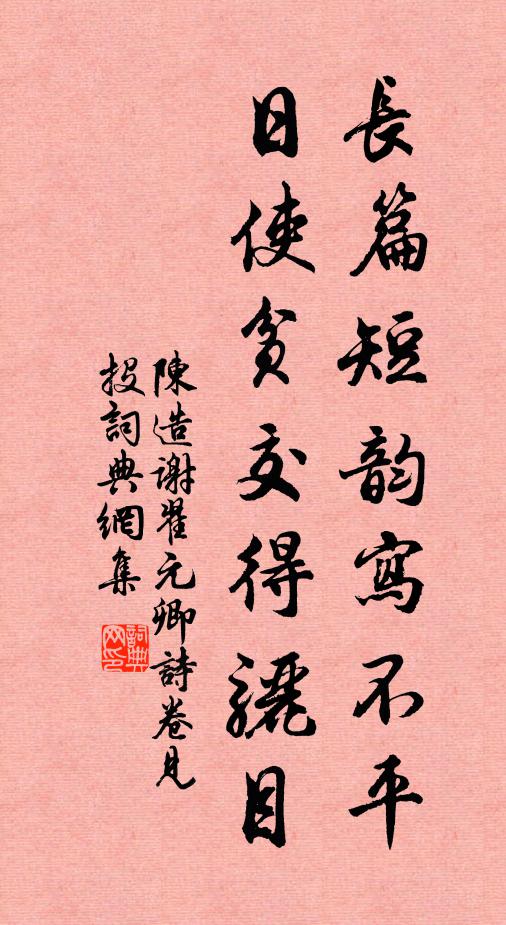 長篇短韵寫不平
日使貧交得驪目
陳造謝翟元卿詩卷見
投詞典網集
詞典網印